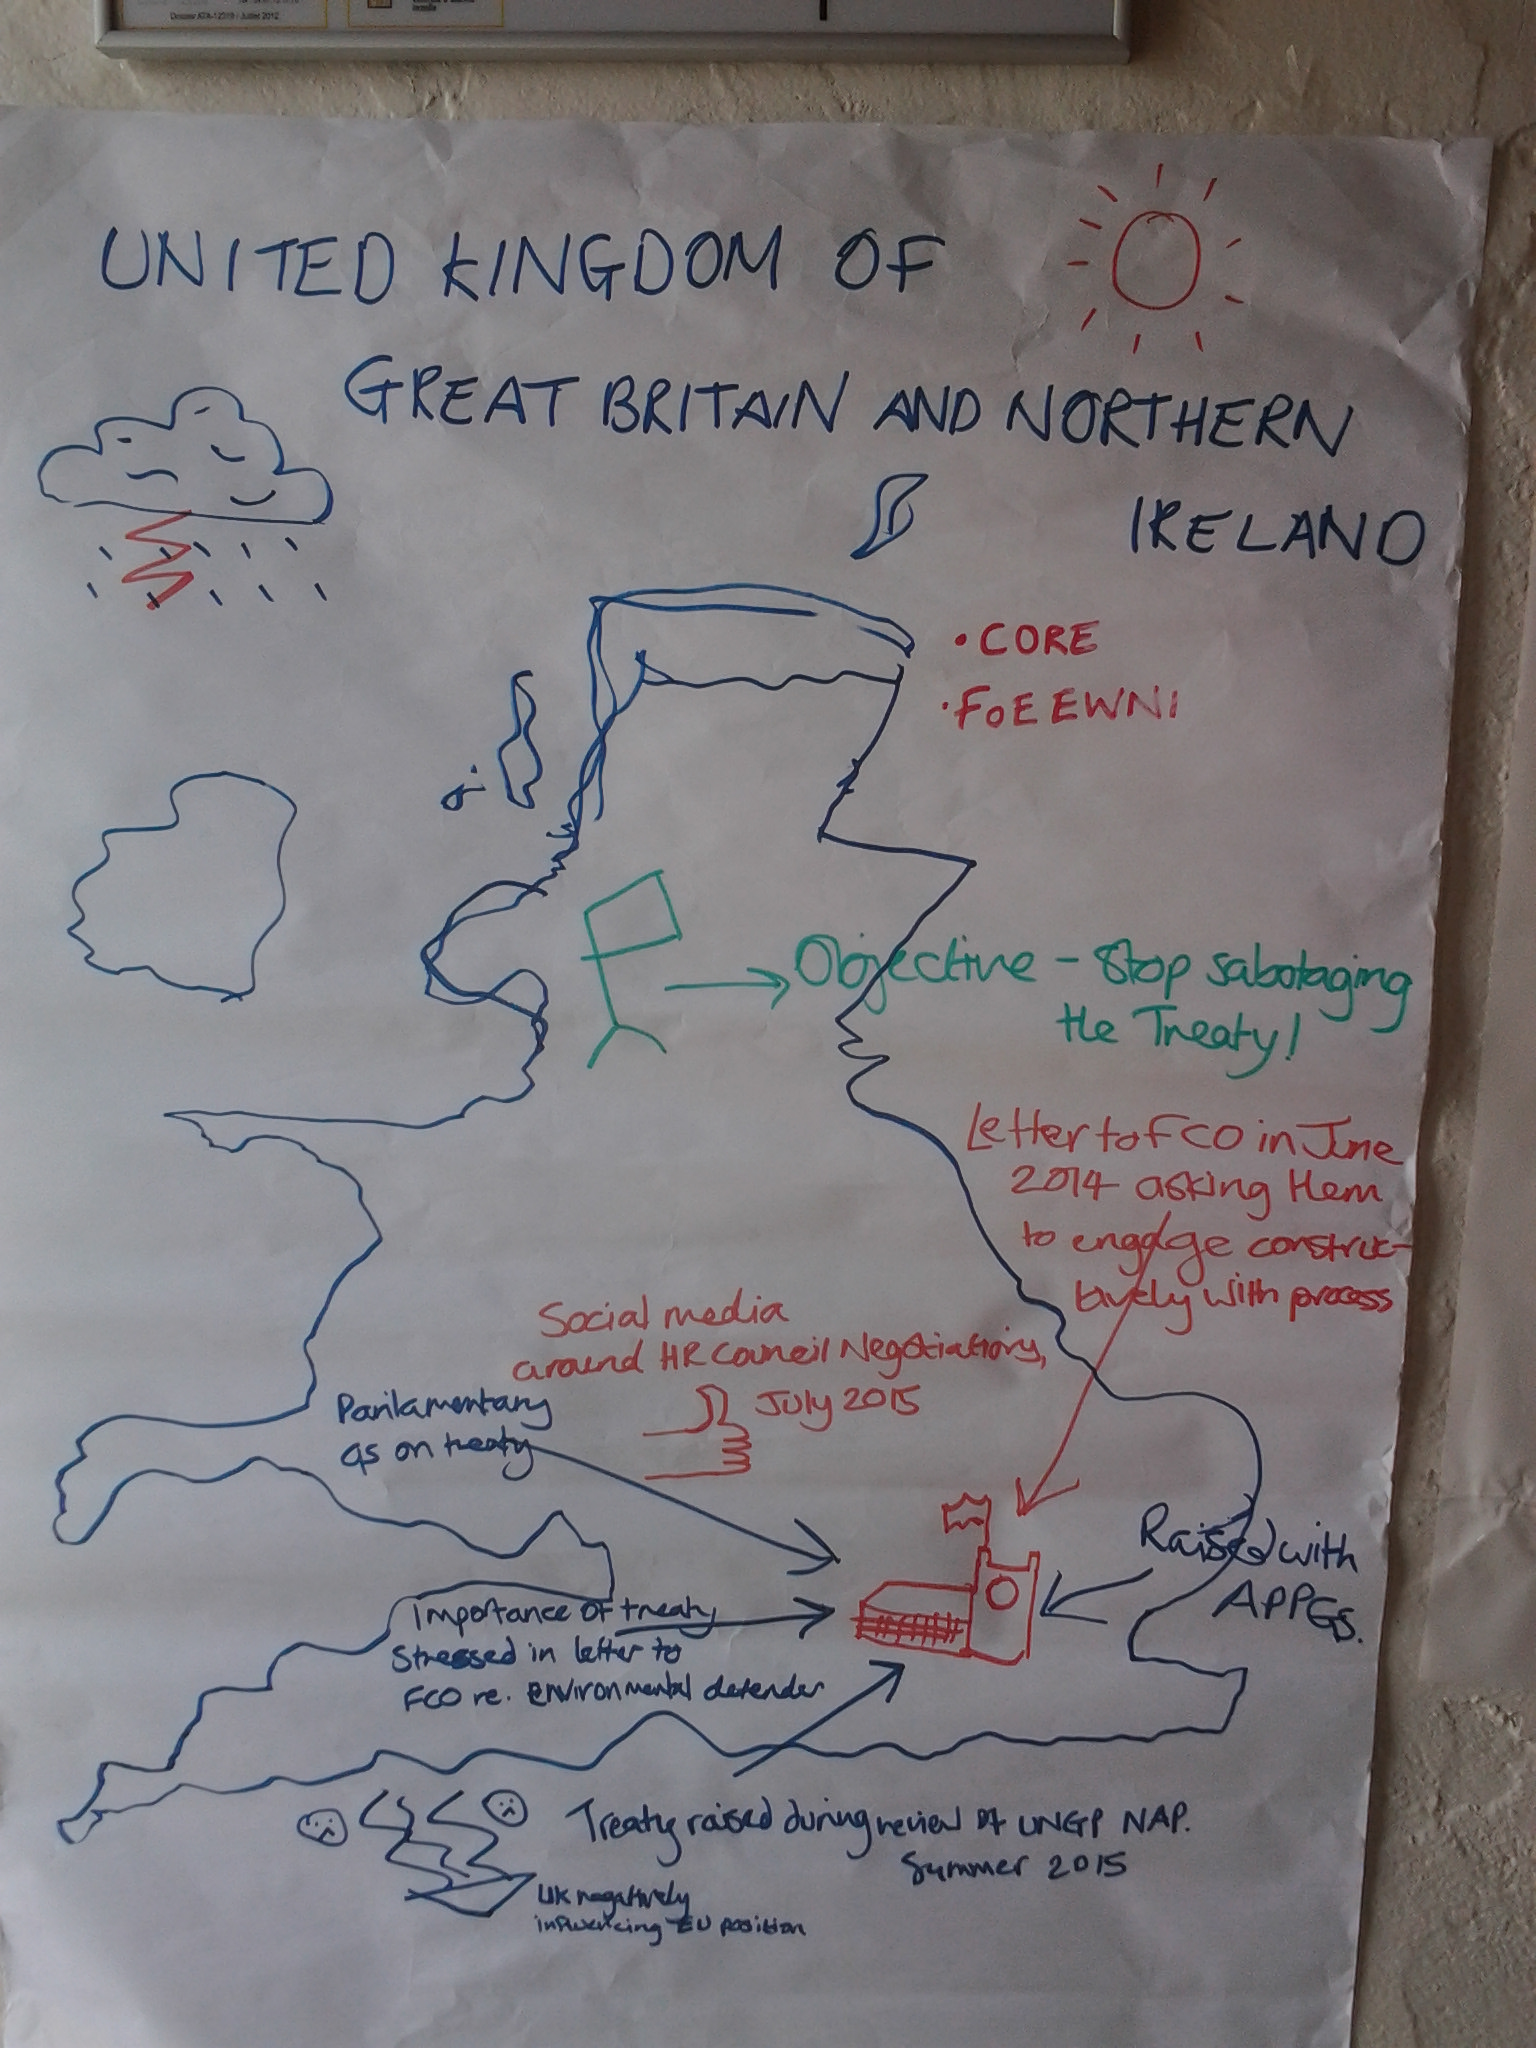 Dossier ATA-12019 - Juillet 2012
UNITED KINGDOM OF
GREAT BRITAIN AND NORTHERN
IRELAND
• CORE
• FOE EWNI
Objective - Stop sabotaging
the Treaty!
Letter to FCO in June
2014 asking them
to engage construc-
tively with process
Social media
around HR Council Negotiations,
July 2015
Parilamentary
Qs on treaty
Raised with
APPGs.
Importance of treaty
stressed in letter to
FCO re. environmental defender
Treaty raised during review of UNGP NAP.
Summer 2015
UK negatively
influencing EU position